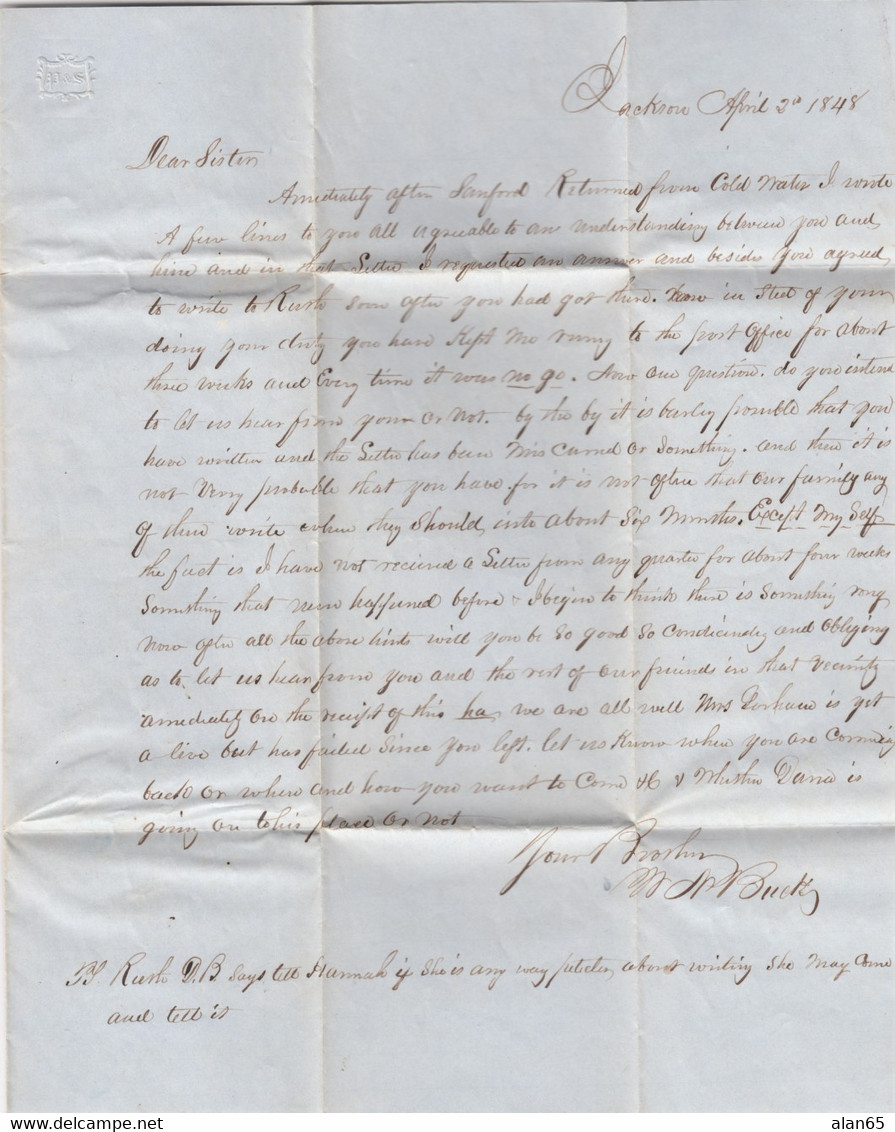 P&S
Jackson April 2d 1848
Dear Sister
Amediately after Sanford Returned from Cold Water I wrote
A few lines to you all agreable to an understanding between you and
him and in that Letter I requested an answer and besides you agreed
to write to Rush soon after you had got there. Now in Sted of your
doing your duty you have Kept me runing to the post Office for about
three weeks and Every time it was no go. Now one question. do you intend
to let us hear from your or Not. by the by it is barley possible that you
have written and the Letter has been Mis caried or Something. and then it is
not Verry probable that you have for it is not often that our family any
of them write when they Should into about Six Months. Except My Self
the fact is I have Not recieved a Letter from any quarter for about four weeks
Something that never happened before & I begin to think there is Something rong
Now after all the above hints will you be so good so and Obliging
as to let us hear from you and the rest of our friends in that Vecinity
amediately on the receipt of this ha, we are all well Mrs is yet
a live but has failed Since you left. let us Know when you are Coming
back or when and how you want to Come &C & Whether is
going on to his place or Not
Your Brother
Buck
PS Rush D.B says tell Hannah if She is any way about writing She May Come
and tell it
alan65